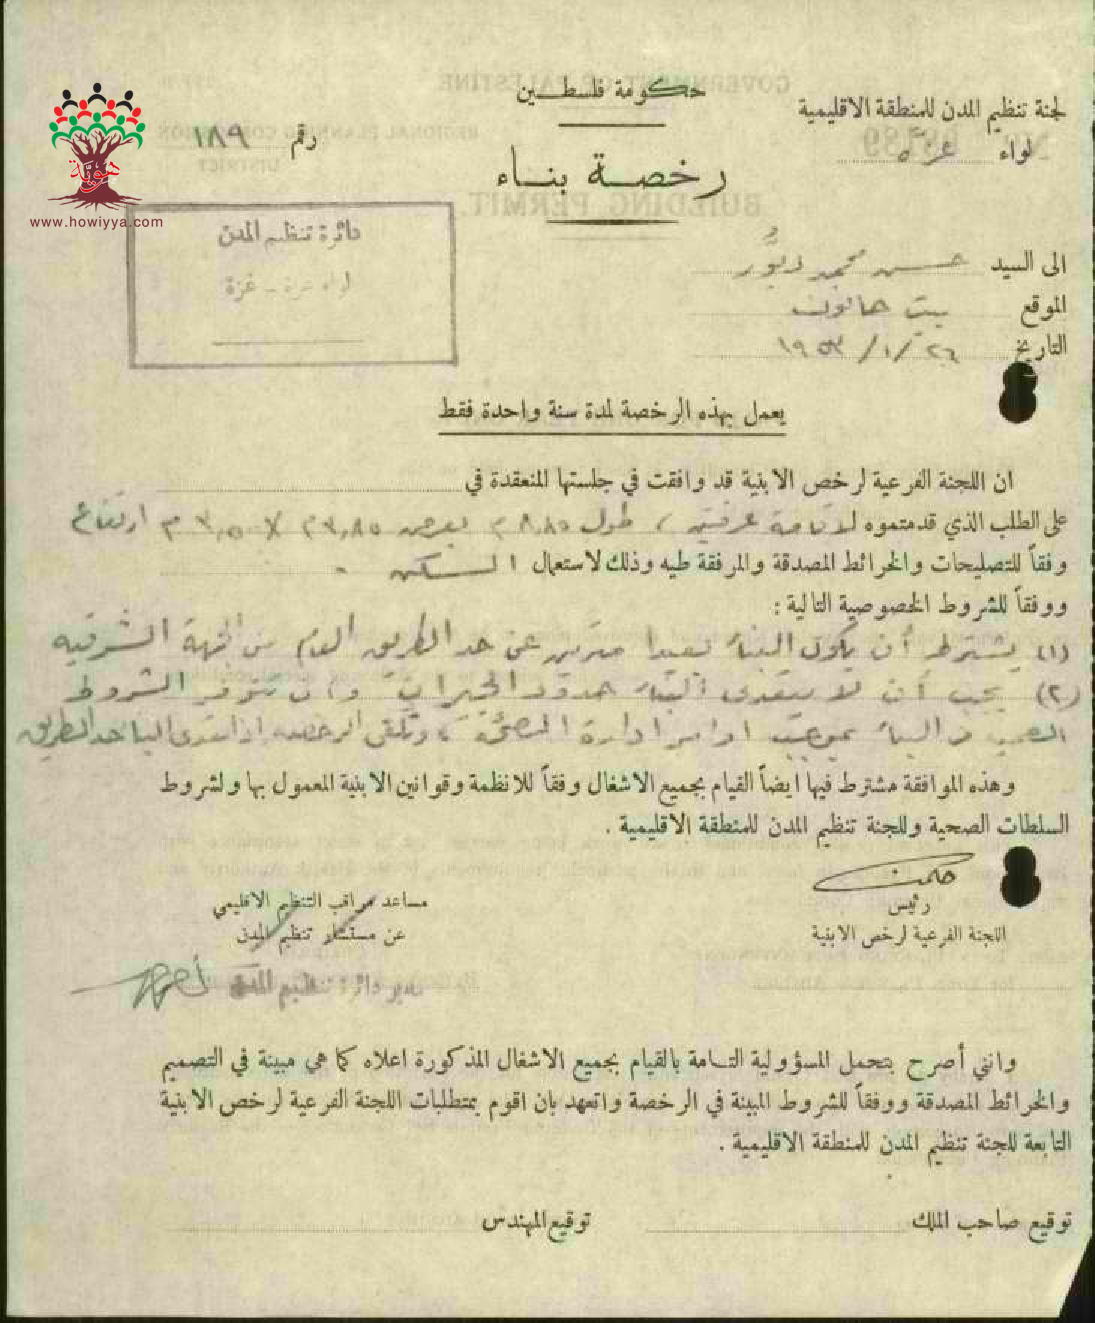 حكومة فلسطين
لجنة تنظيم المدن للمنطقة الاقليمية
لواء غزة
رقم ١٨٩
رخصة بناء
هوية
www.howiyya.com
دائرة تنظيم المدن
لواء غزة - غزة
الى السيد حسن محمد
الموقع بيت حانون
التاريخ ٢٦/١/١٩٥٣
يعمل بهذه الرخصة لمدة سنة واحدة فقط
ان اللجنة الفرعية لرخص الابنية قد وافقت في جلستها المنعقدة في
على الطلب الذي قدمتموه لاقامة غرفتين، طول ٨,٨٥ م بعرض ٣,٨٥ م X ٣,٥٠ م ارتفاع
وفقاً للتصليحات والخرائط المصدقة والمرفقة طيه وذلك لاستعمال السكن .
ووفقاً للشروط الخصوصية التالية :
(١) يشترط أن يكون البناء بعيدا مترين عن حد الطريق العام من الجهة الشرقية
(٢) يجب أن لا يتعدى البناء حدود الجيران وأن تتوفر الشروط
الصحية في البناء بموجب اوامر ادارة الصحة، وتلغى الرخصة إذا تعدى البناء حد الطريق
وهذه الموافقة مشترط فيها ايضاً القيام بجميع الاشغال وفقاً للانظمة وقوانين الابنية المعمول بها ولشروط
السلطات الصحية وللجنة تنظيم المدن للمنطقة الاقليمية .
رئيس
اللجنة الفرعية لرخص الابنية
مساعد مراقب التنظيم الاقليمي
عن مستشار تنظيم المدن
مدير دائرة تنظيم المدن
وانني أصرح بتحمل المسؤولية التامة بالقيام بجميع الاشغال المذكورة اعلاه كما هي مبينة في التصميم
والخرائط المصدقة ووفقاً للشروط المبينة في الرخصة واتعهد بان اقوم بمتطلبات اللجنة الفرعية لرخص الابنية
التابعة للجنة تنظيم المدن للمنطقة الاقليمية .
توقيع صاحب الملك
توقيع المهندس